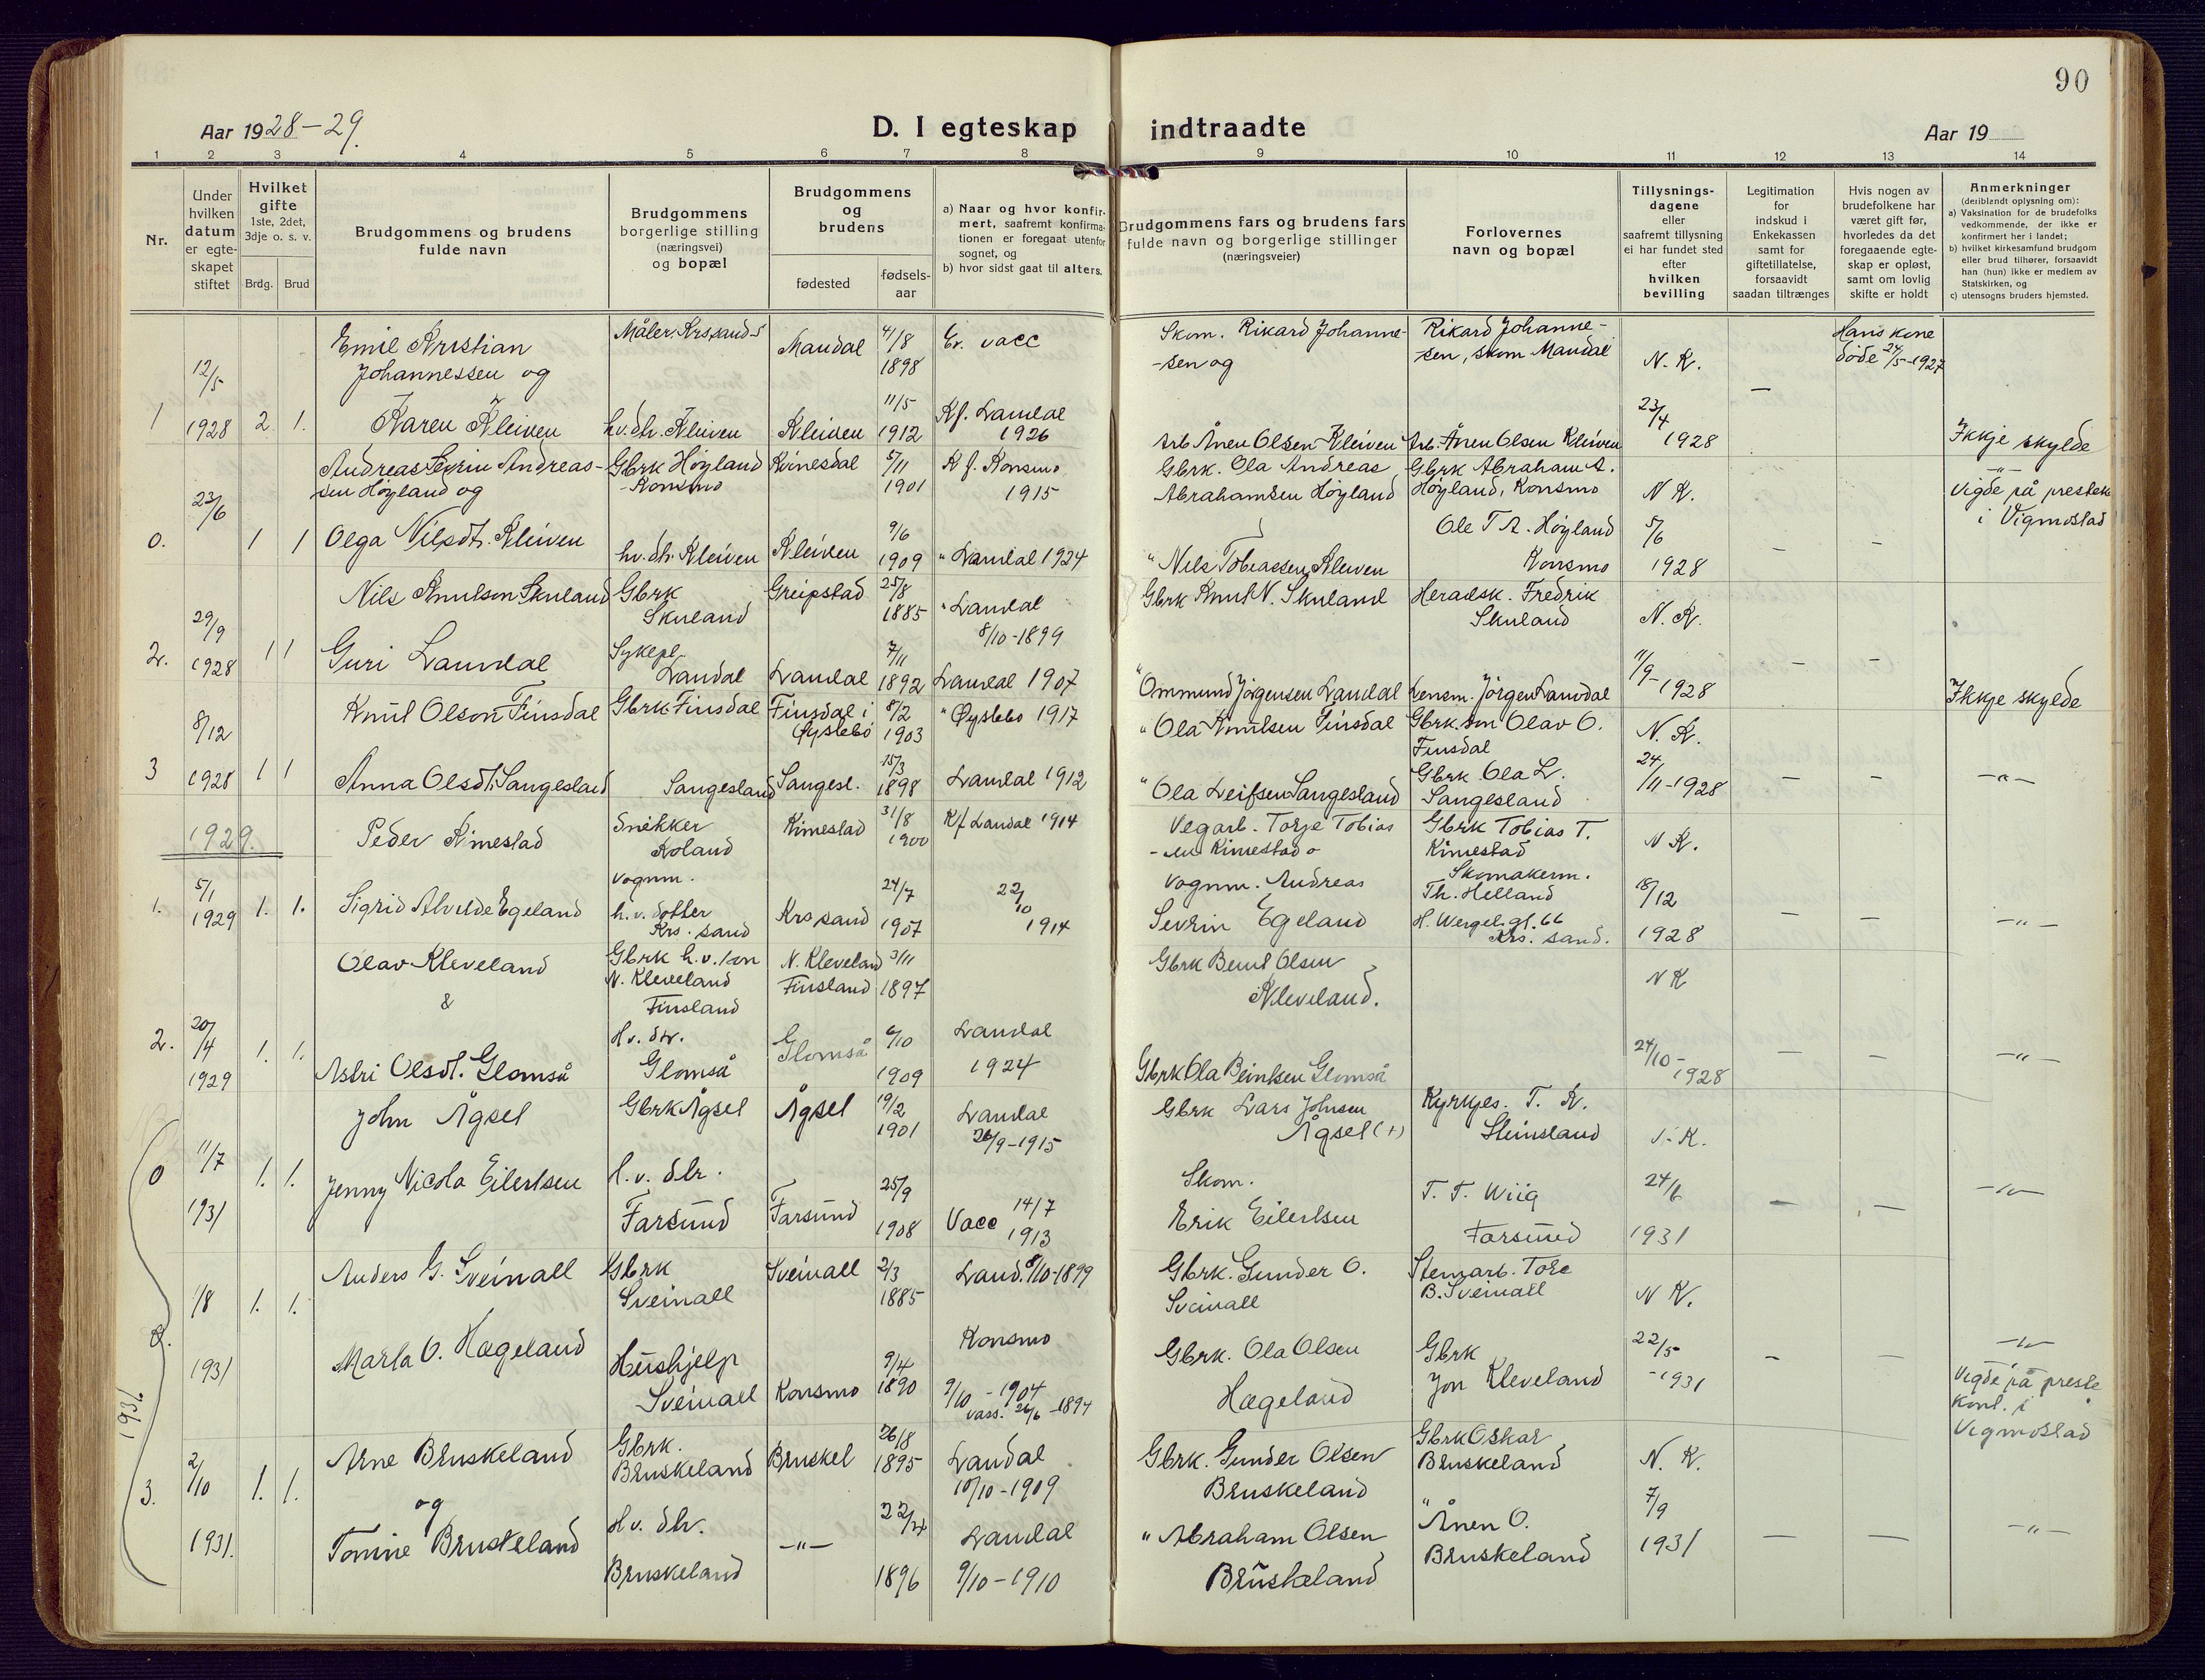 90
Aar 1928-29.
D. I egteskap indtraadte
Aar 19
1 2 3 4 5 6 7 8 9 10 11 12 13 14
Nr.
Under hvilken datum er egteskapet stiftet
Hvilket gifte
1ste, 2det, 3dje o. s. v.
Brdg. Brud
Brudgommens og brudens fulde navn
Brudgommens borgerlige stilling (næringsvei) og bopæl
Brudgommens og brudens
fødested
fødsels-aar
a) Naar og hvor konfirmert, saafremt konfirmationen er foregaat utenfor sognet, og
b) hvor sidst gaat til alters.
Brudgommens fars og brudens fars fulde navn og borgerlige stillinger (næringsveier)
Forlovernes navn og bopæl
Tillysningsdagene eller saafremt tillysning ei har fundet sted efter hvilken bevilling
Legitimation for indskud i Enkekassen samt for giftetillatelse, forsaavidt saadan tiltrænges
Hvis nogen av brudefolkene har været gift før, hvorledes da det foregaaende egteskap er opløst, samt om lovlig skifte er holdt
Anmerkninger
(deriblandt oplysning om):
a) Vaksination for de brudefolks vedkommende, der ikke er konfirmert her i landet;
b) hvilket kirkesamfund brudgom eller brud tilhører, forsaavidt han (hun) ikke er medlem av Statskirken, og
c) utensogns bruders hjemsted.
1 12/5 1928 2. 1.
Emil Kristian Johannessen og
Måler, Krssand S
Mandal
4/8 1898
Ev. vacc
Skom. Rikard Johanne-
-sen og
Rikard Johanne-
-sen, skom Mandal
N. K.
Hans kone
døde 24/5-1927
Karen Kleiven
hv. dtr. Kleiven
Kleiven
11/5 1912
Kf. Laudal
1926
Arb Ånen Olsen Kleiven
Arb. Ånen Olsen Kleiven
23/4 1928
Ikkje skylde
0. 23/6 1 1
Andreas Severin Andreas-
sen Høyland og
Gbrk Høyland
-Konsmo
Kvinesdal
5/11 1901
Kf. Konsmo
1915
Gbrk. Ola Andreas
Abrahamsen Høyland
Gbrk Abraham A.
Høyland, Konsmo
N K.
-"-
Vigde på prestek
i Vigmostad
Olga Nilsdt. Kleiven
hv. dtr. Kleiven
Kleiven
9/6 1909
" Laudal 1924
" Nils Tobiassen Kleiven
Ole T A. Høyland
Konsmo
5/6 1928
2. 29/9 1928 1 1
Nils Knutson Skuland
Gbrk
Skuland
Greipstad
25/8 1885
" Laudal
8/10-1899
Gbrk Knut N. Skuland
Heradsk. Fredrik
Skuland
N. K.
Guri Laudal
Sykepl.
Laudal
Laudal
7/11 1892
Laudal 1907
" Ommund Jørgensen Laudal
Lensm. Jørgen Laudal
11/9-1928
Ikkje skylde
3 8/12 1928 1 1
Knut Olson Finsdal
Gbrk Finsdal
Finsdal i
Øyslebø
8/2 1903
" Øyslebø 1917
" Ola Knutsen Finsdal
Gbrk. son Olav O.
Finsdal
N. K.
Anna Olsdt. Sangesland
Sangesland
Sangesl.
15/3 1898
Laudal 1912
" Ola Leifsen Sangesland
Gbrk Ola L.
Sangesland
24/11-1928
-"-
1929.
1. 5/1 1929 1. 1.
Peder Kimestad
Snikker
Koland
Kimestad
31/8 1900
Kf Laudal 1914
Vegarb. Torje Tobias
-en Kimestad o
Gbrk Tobias T.
Kimestad
N K.
Sigrid Alvilde Egeland
Vognm.
h.v. dotter
Krs. sand
Krssand
24/7 1907
22/10 1914
Vognm. Andreas
Severin Egeland
Skomakerm.
Th. Helland
H. Wergel. gt. 66
Krs. sand.
18/12 1928
-"-
2. 20/4 1929 1. 1.
Olav Kleveland
&
Gbrk h.v. son
N. Kleveland
Finsland
N. Kleveland
Finsland
3/11 1897
Gbrk Bernt Olsen
Kleveland.
N K
Astri Olsdt. Glomså
Hv. dtr.
Glomså
Glomså
6/10 1909
Laudal
1924
Gbrk Ola Beintsen Glomså
24/10-1928
-"-
1931
0 11/7 1931 1. 1.
John Ågsel
Gbrk Ågsel
Ågsel
19/2 1901
Laudal
26/9-1915
Gbrk Lars Johnsen
Ågsel (+)
Kyrkjes. T. K.
Steinsland
Jenny Nicola Eilertsen
H.v. dtr.
Farsund
Farsund
25/9 1908
Vacc 14/7 1913
Skom.
Erik Eilertsen
T. T. Wiig
Farsund
24/6 1931
-"-
1/8 1931 1. 1.
Anders G. Sveinall
Gbrk
Sveinall
Sveinall
2/3 1885
Laud. 8/10-1899
Gbrk. Gunder O.
Sveinall
Stenarb. Tore
B. Sveinall
N K.
Marta O. Hægeland
Hushjelp
Sveinall
Konsmo
9/4 1890
Konsmo
9/10-1904
Vacc. 26/6-1894
Gbrk. Ola Olsen
Hægeland
Gbrk
Jon Kleveland
22/5-1931
-"-
Vigde på preste
kont. i
Vigmostad
3. 2/10 1931. 1. 1.
Arne Bruskeland
og
Gbrk.
Bruskeland
Bruskel
26/8 1895
Laudal
10/10-1909
Gbrk. Gunder Olsen
Bruskeland
Gbrk Oskar
Bruskeland
N. K.
Tomine Bruskeland
Hv. dtr.
Bruskeland
-"-
1896
Laudal
9/10-1910
" Abraham Olsen
Bruskeland
" Ånen O.
Bruskeland
7/9 1931
-"-